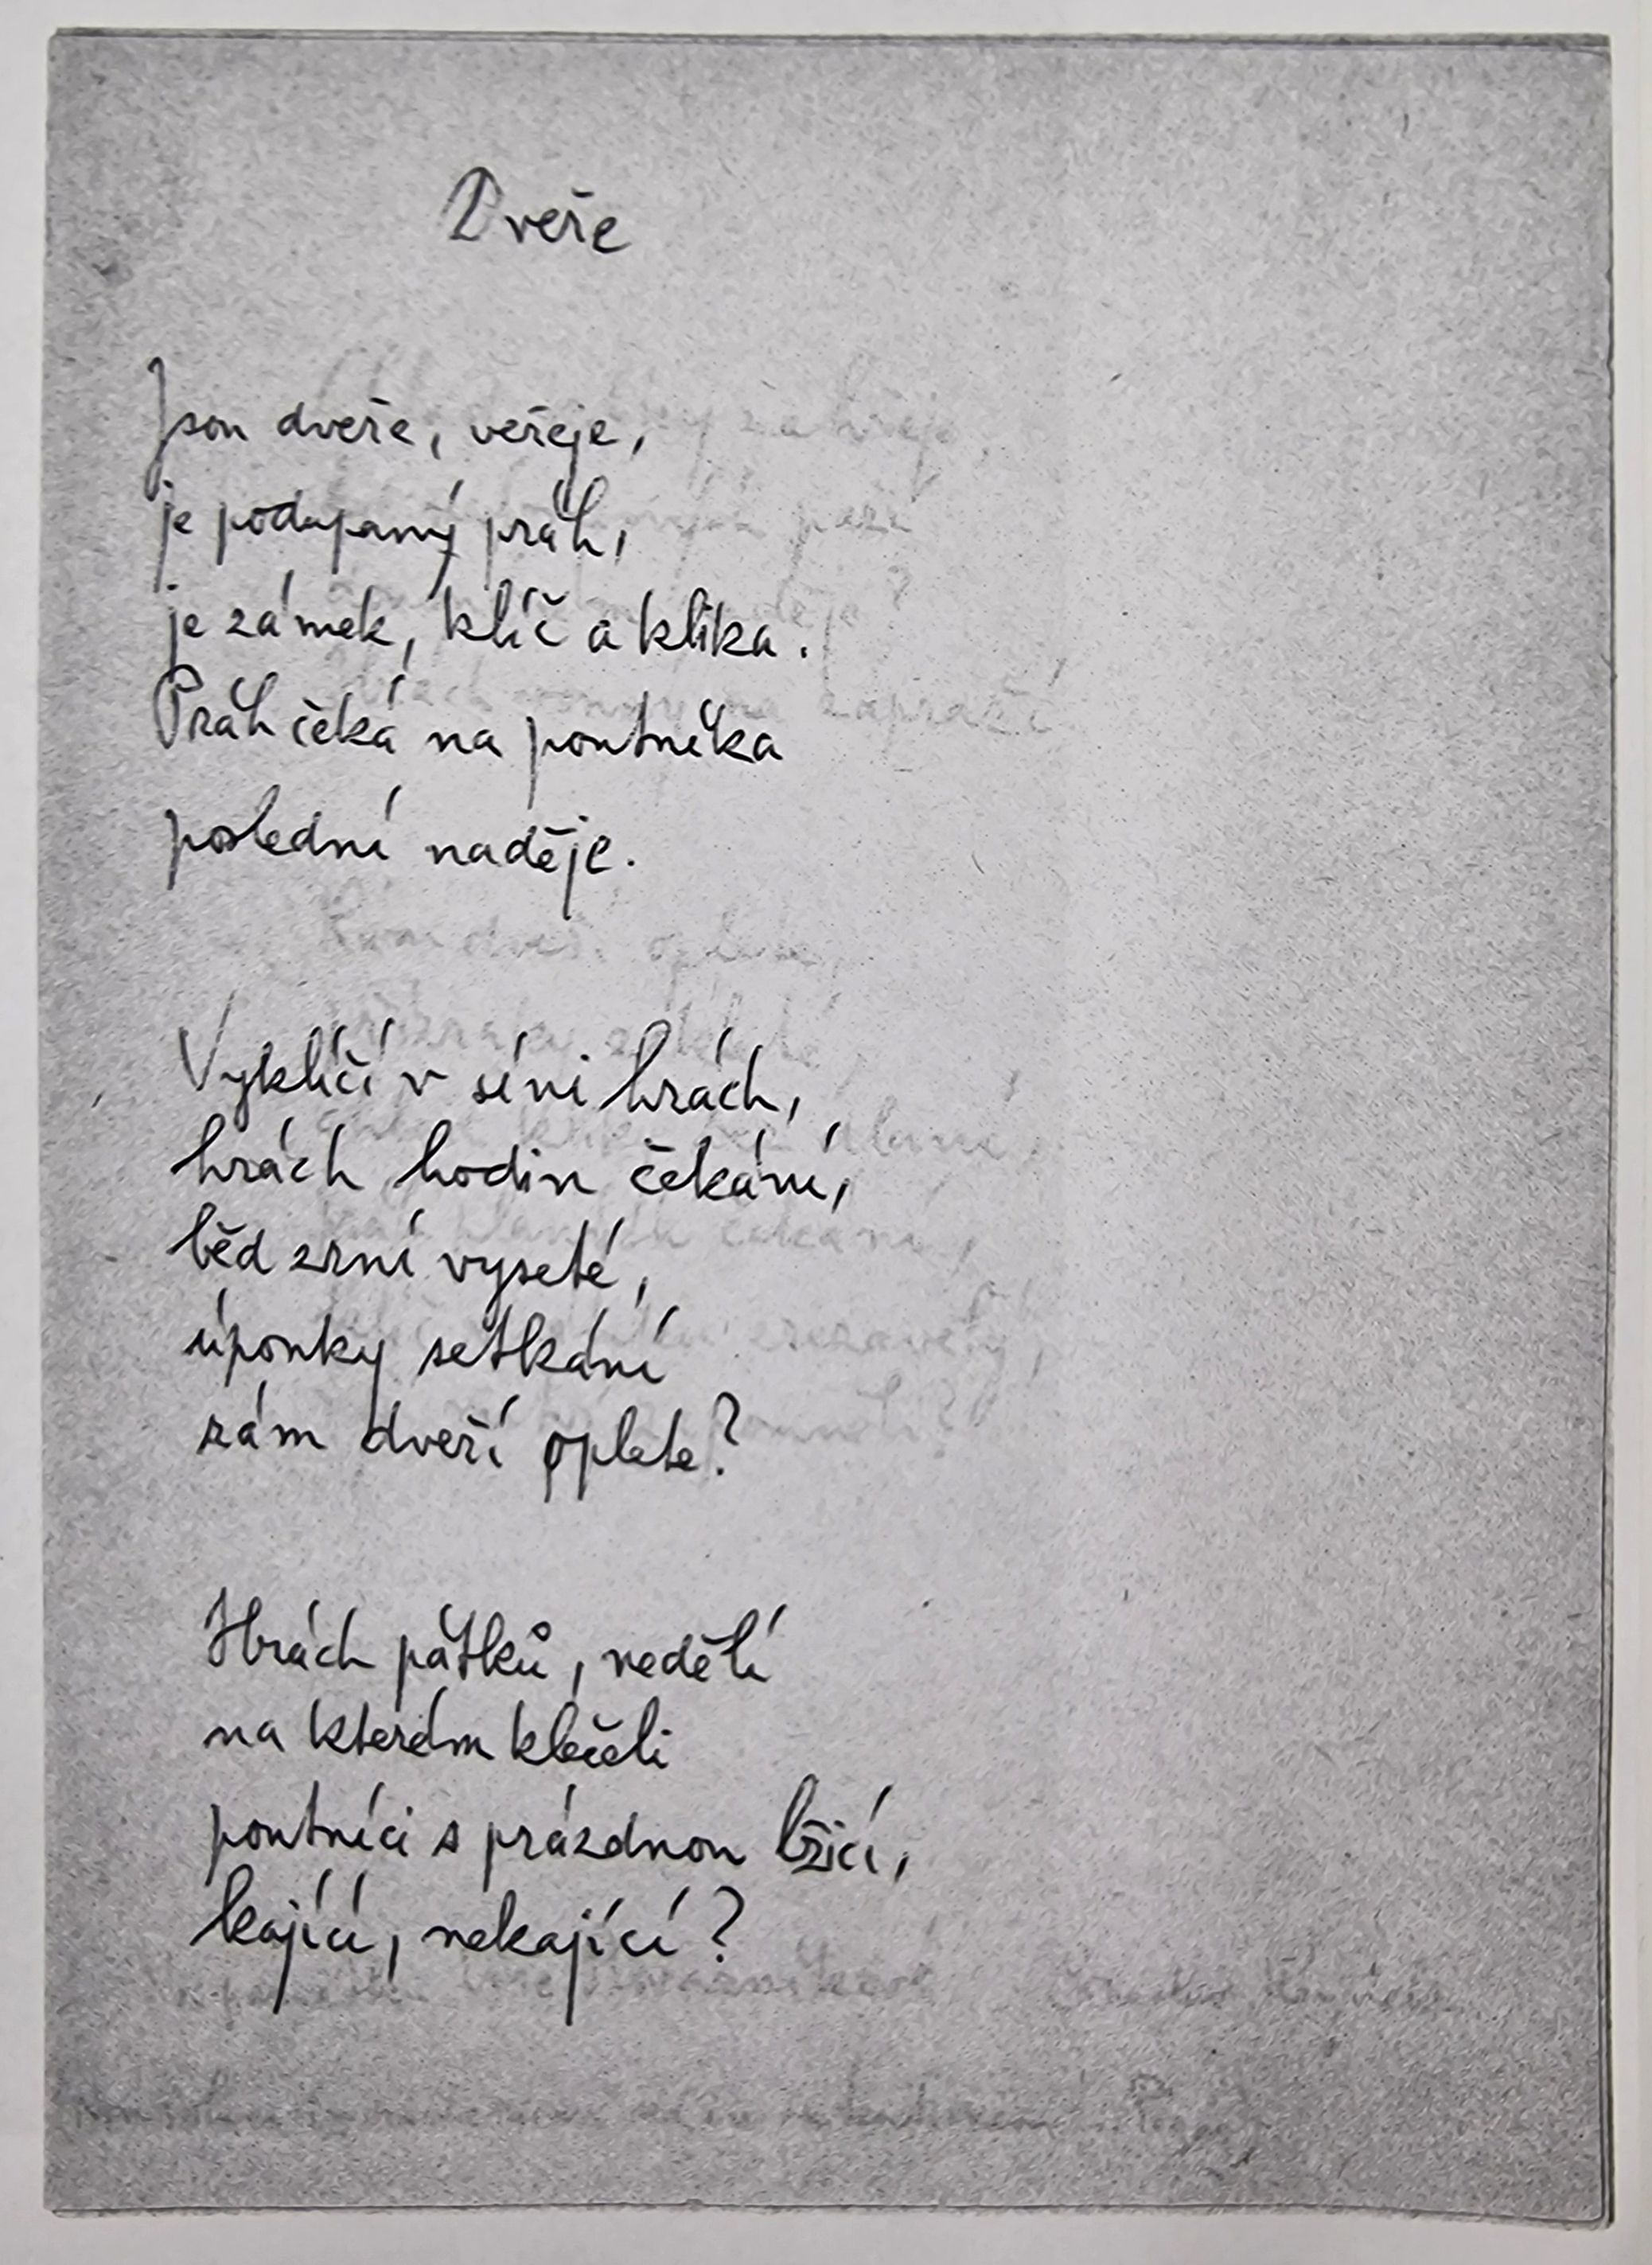 Dveře
Jsou dveře, veřeje,
je podupaný práh,
je zámek, klíč a klika.
Práh čeká na poutníka
poslední naděje.
Vyklíčí v síni hrách,
hrách hodin čekání,
běd zrní vyseté,
úponky setkání
rám dveří oplete?
Hrách pátků, nedělí
na kterém klečeli
poutníci s prázdnou lžící,
kající, nekající?